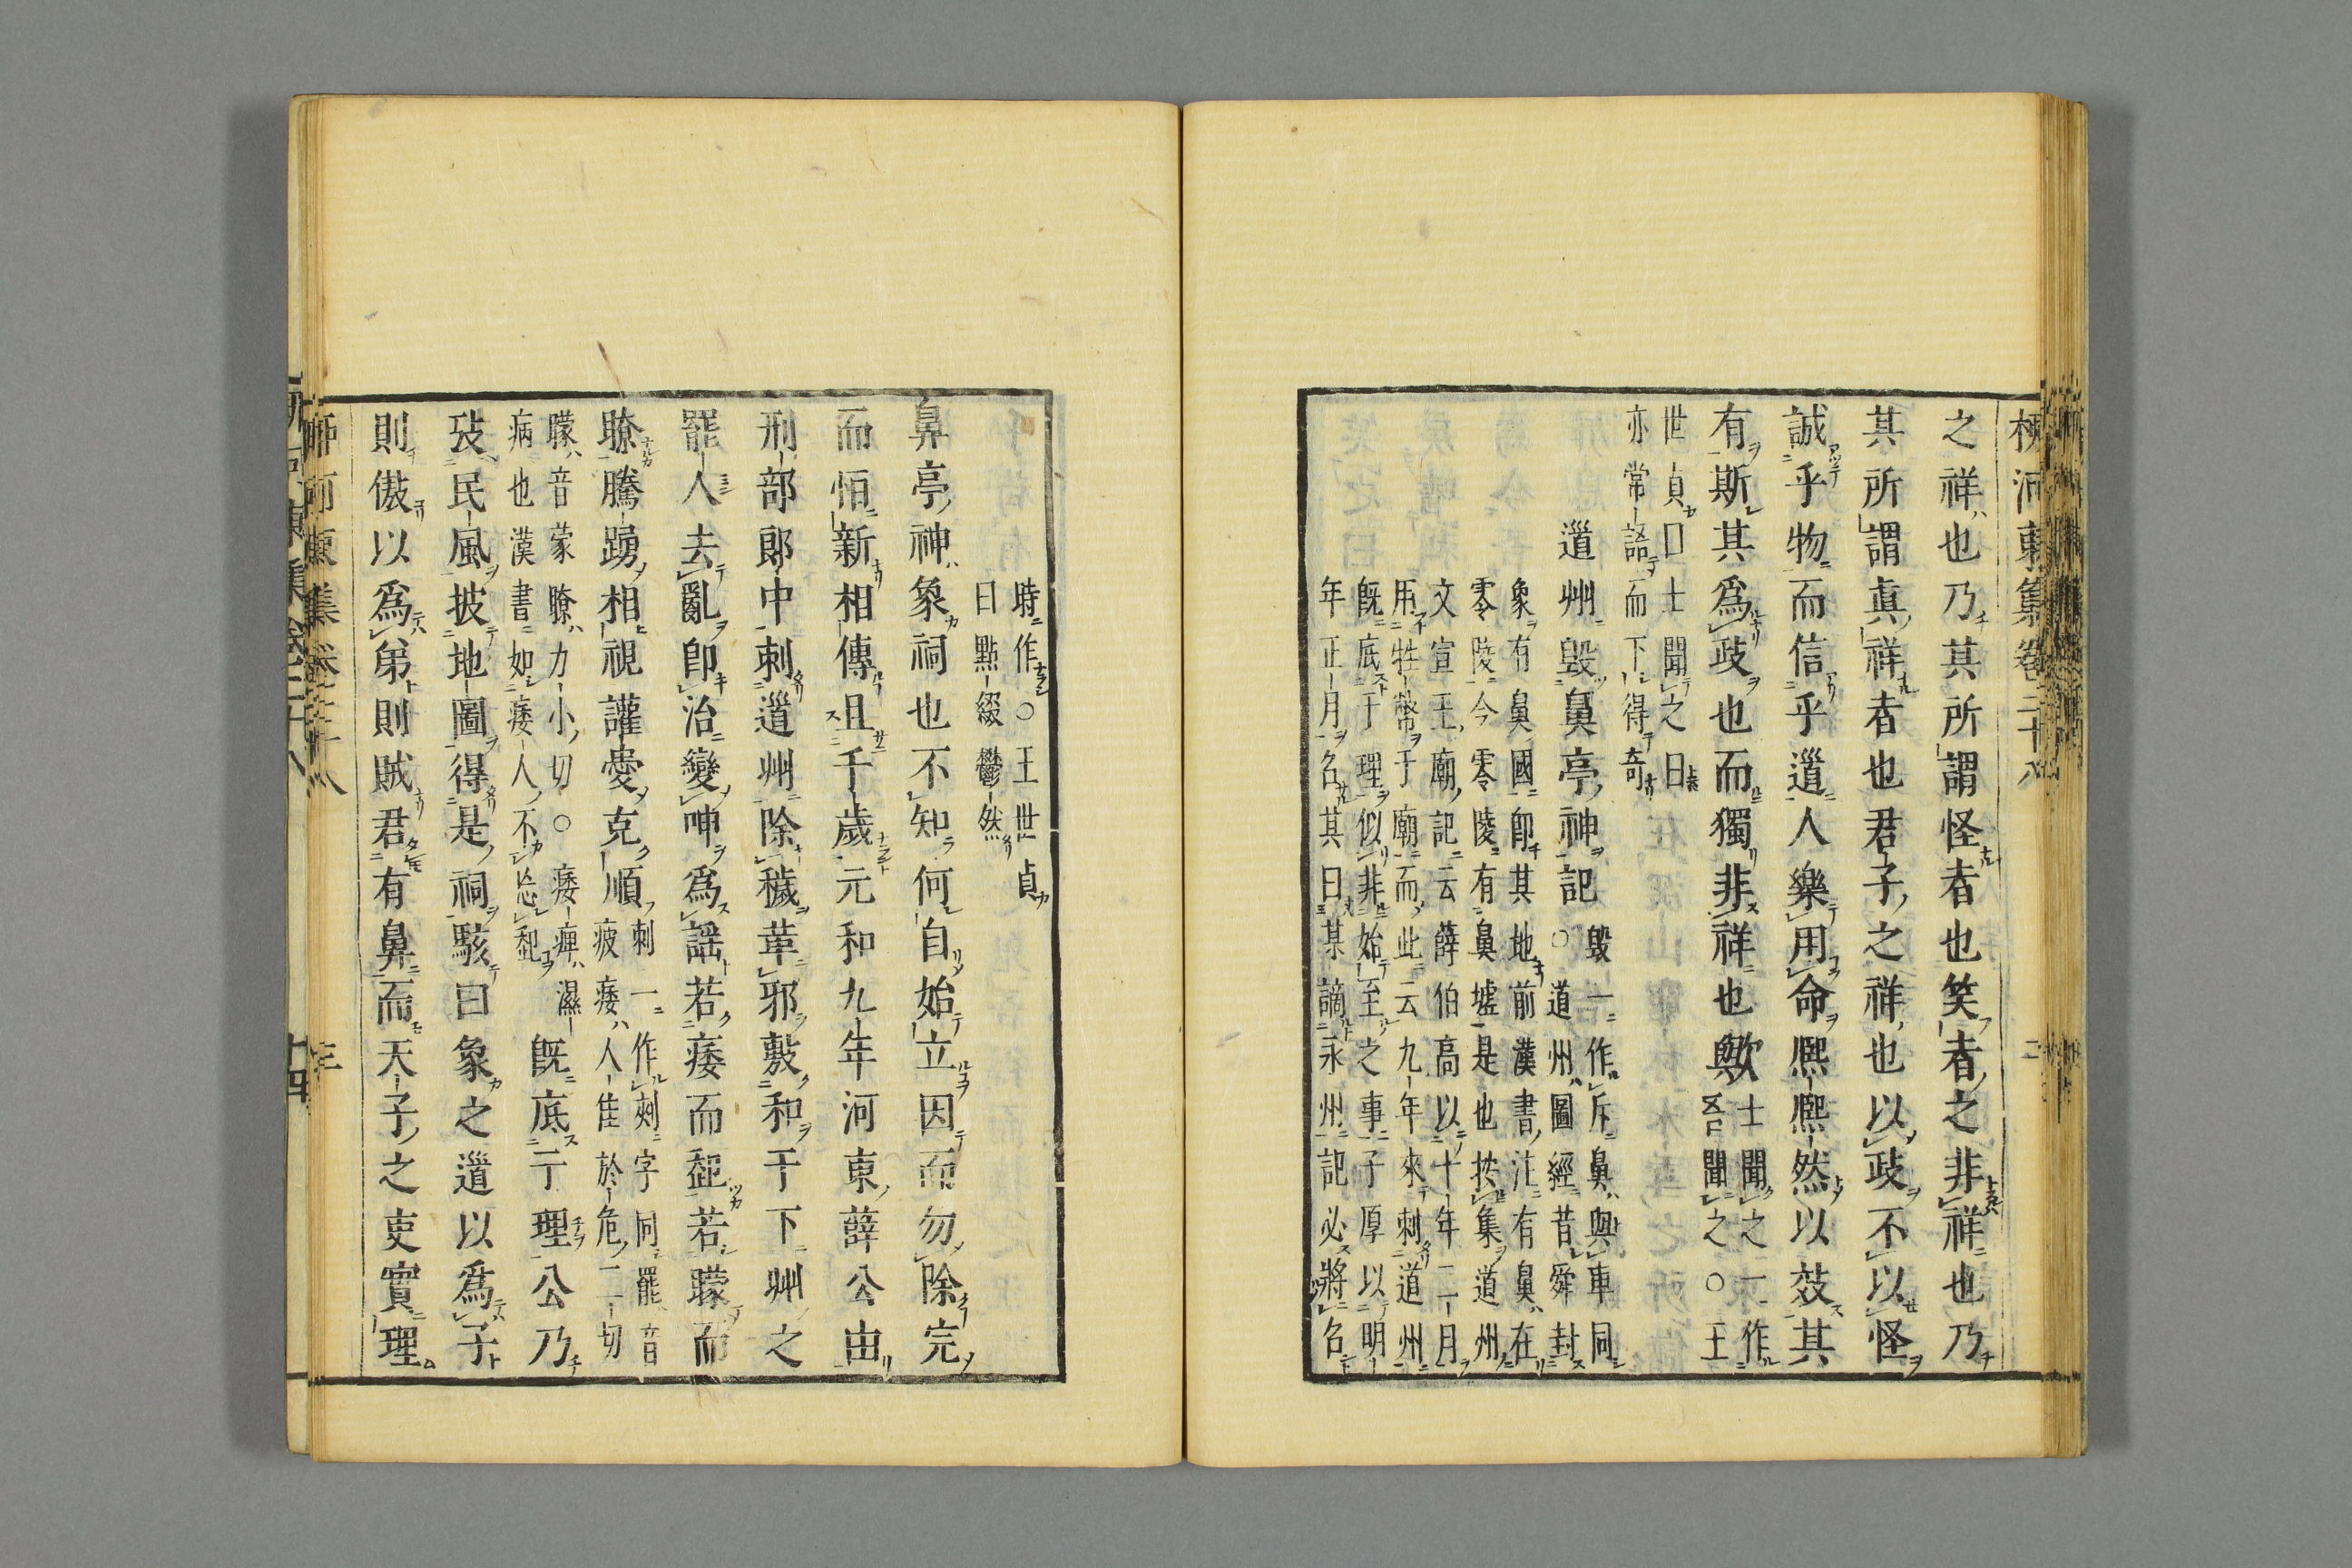 柳河東集卷二十八 二
之祥也乃其所謂怪者也笑者之非祥也乃
其所謂眞祥者也君子之祥也以政不以怪
誠乎物而信乎道人樂用命熙熙然以效其
有斯其爲政也而獨非祥也歟
士聞之一作
吾聞之○王
世貞曰士聞之曰
亦常語而下得奇
道州毀鼻亭神記
毀一作斥鼻與車同
○道州圖經昔舜封
象有鼻國卽其地前漢書注有鼻在
零陵今零陵有鼻墟是也按集道州
文宣王廟記云薛伯高以十年二月
用牲幣于廟而此云九年來刺道州
旣底于理似非始至之事子厚以明
年正月名其日某謫永州記必將名
時作○王世貞
曰點綴鬱然
鼻亭神象祠也不知何自始立因而勿除完
而恒新相傳且千歲元和九年河東薛公由
刑部郎中刺道州除穢革邪敷和于下州之
罷人去亂卽治變呻爲謠若痿而起若矇而
瞭騰踴相視讙愛克順
刺一作剌字同罷音
疲痿人隹於危二切
矇音蒙瞭力小切○痿痺濕
病也漢書如痿人不忘起
旣底于理公乃
攷民風披地圖得是祠駭曰象之道以爲子
則傲以爲弟則賊君有鼻而天子之吏實理
柳河東集卷二十八 三
十四